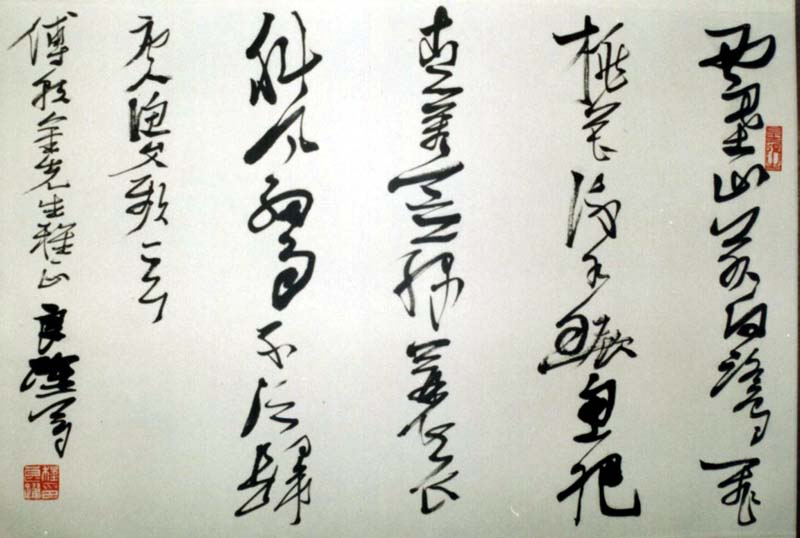 西塞山前白鷺飛
桃花流水鱖魚肥
青箬笠綠蓑衣
斜風細雨不須歸
唐人漁父歌一首
傅金先生雅正 良寫